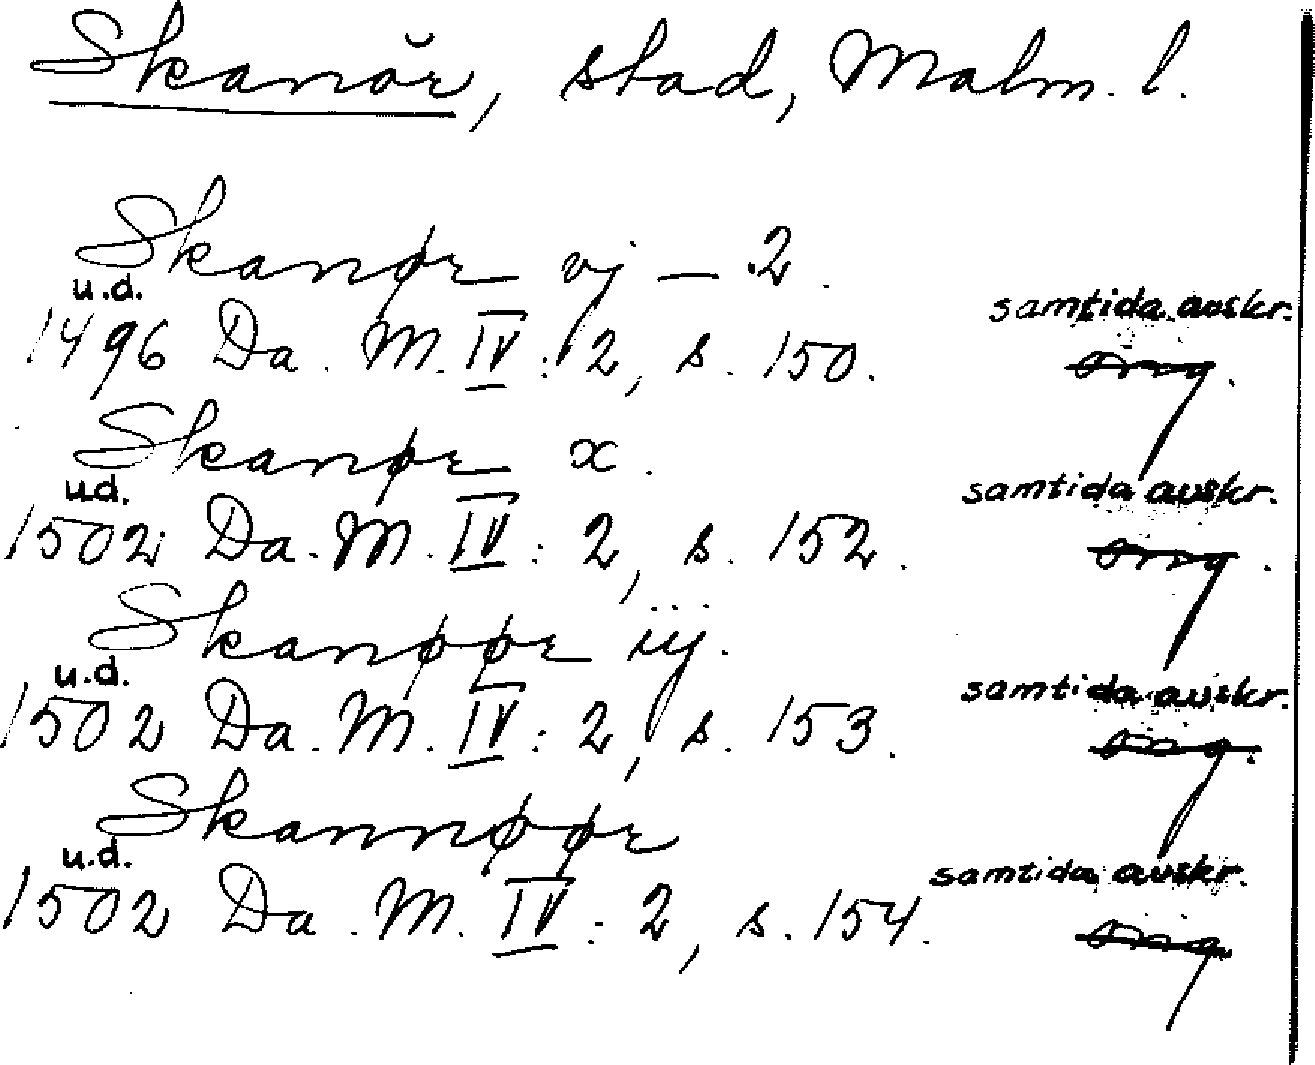 Skanör, stad, Malm. l.
Skanør vj — 2.
u.d. samtida avskr.
1496 Da. M. IV: 2, s. 150. org.
Skanør x.
u.d. samtida avskr.
1502 Da. M. IV: 2, s. 152. org.
Skanøør iij.
u.d. samtida avskr.
1502 Da. M. IV: 2, s. 153. org.
Skannøør
u.d. samtida avskr.
1502 Da. M. IV: 2, s. 154. org